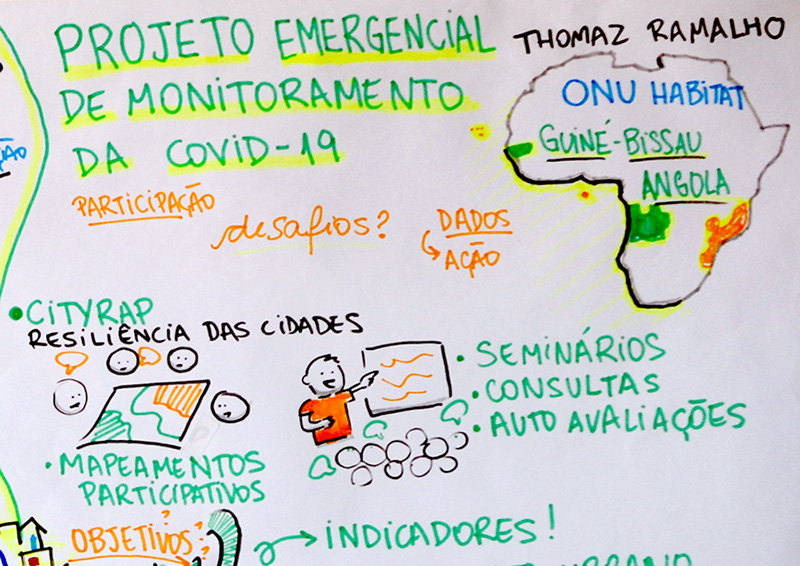 PROJETO EMERGENCIAL
DE MONITORAMENTO
DA COVID-19
THOMAZ RAMALHO
ONU HABITAT
GUINÉ-BISSAU
ANGOLA
PARTICIPAÇÃO
desafios?
DADOS
AÇÃO
• CITYRAP
RESILIÊNCIA DAS CIDADES
• SEMINÁRIOS
• CONSULTAS
• AUTO AVALIAÇÕES
• MAPEAMENTOS
PARTICIPATIVOS
OBJETIVOS
INDICADORES!
URBANO